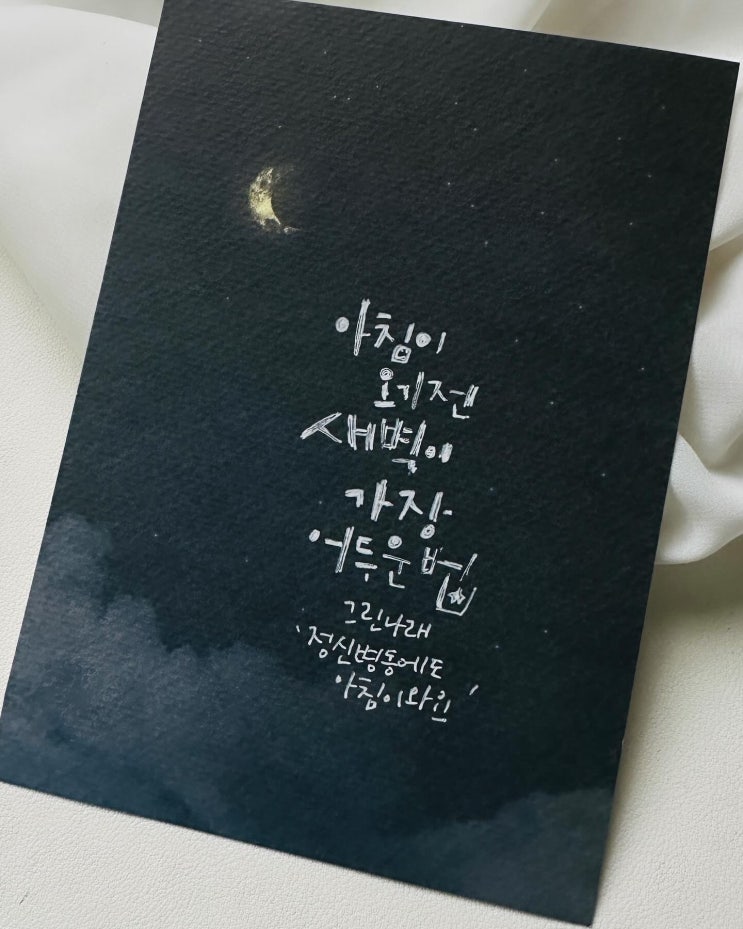 아침이
오기전
새벽이
가장
어두운 법
그린나래
'정신병동에도
아침이와요'